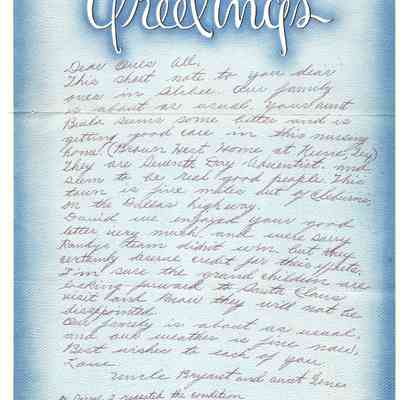 Greetings
Dear Ones All,
This short note to you dear
ones in Our family
is about as usual. Your aunt
Beula seems some better and is
getting good care in this nursing
home. (Brown West Home at Keene, Tex)
They are Seventh Day Adventist. and
seem to be real good people. This
town is five miles out of Cleburne,
on the Dallas highway.
David we enjoyed your good
letter very much and were sorry
Randys team didn't win but they
certainly deserve credit for their efforts.
I'm sure the grand children are
looking forward to Santa Claus
visit and know they will not be
disappointed.
Our family is about as usual,
and our weather is fine now.
Best wishes to each of you
Love
Uncle Bryant and aunt Gene
I the condition